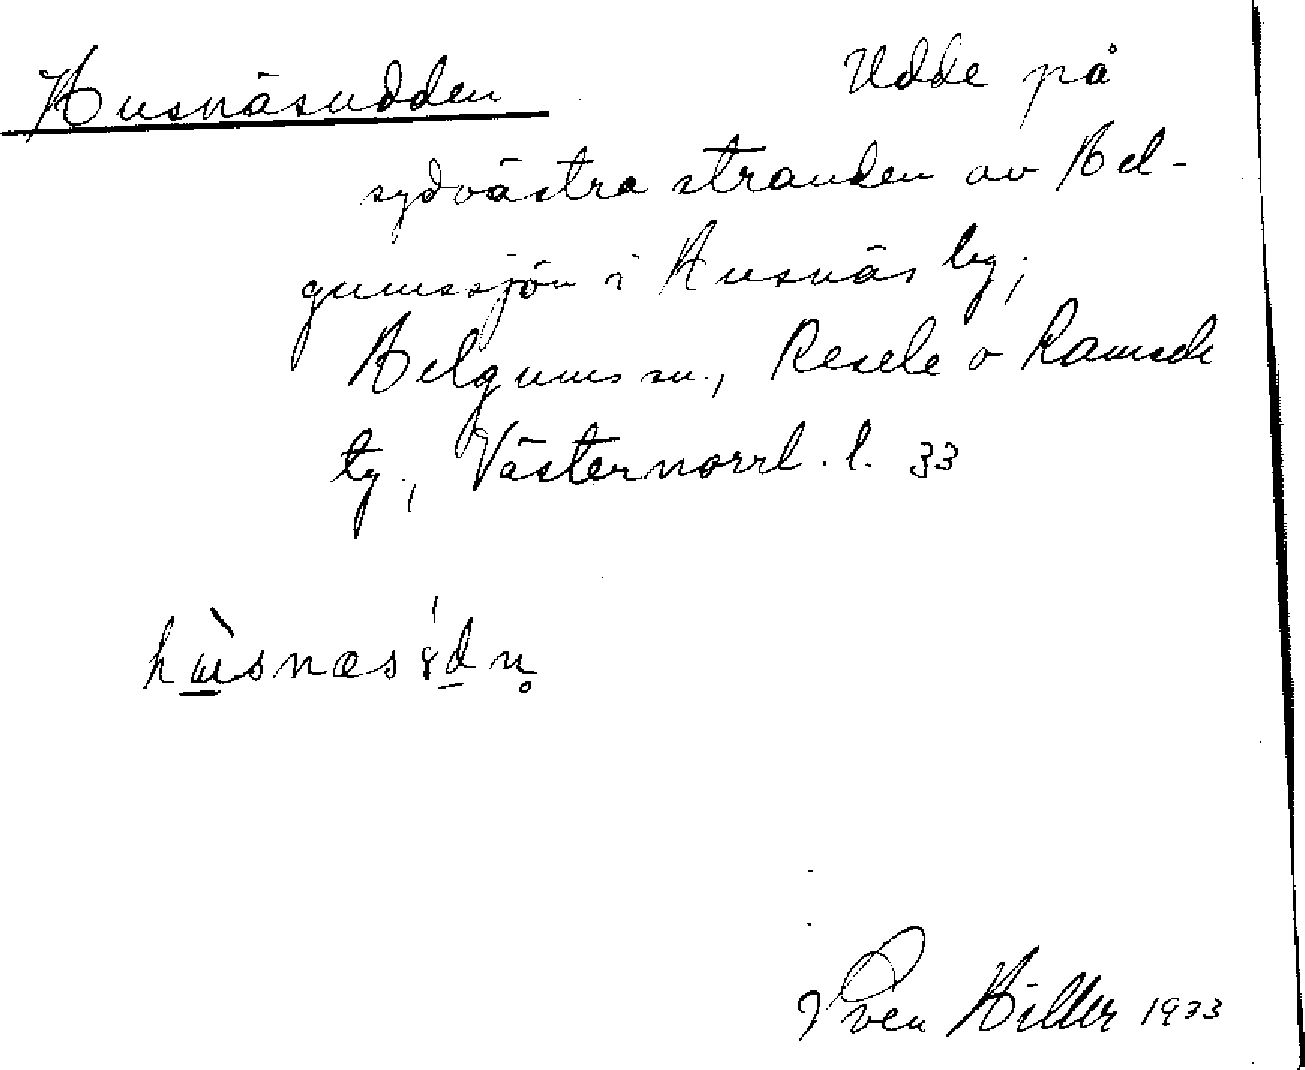 Husnäsudden Udde på
sydvästra stranden av Hel-
gumssjön i Husnäs by;
Helgums sn., Resele o Ramsele
tg., Västernorrl. l. 33
Sven Hiller 1933